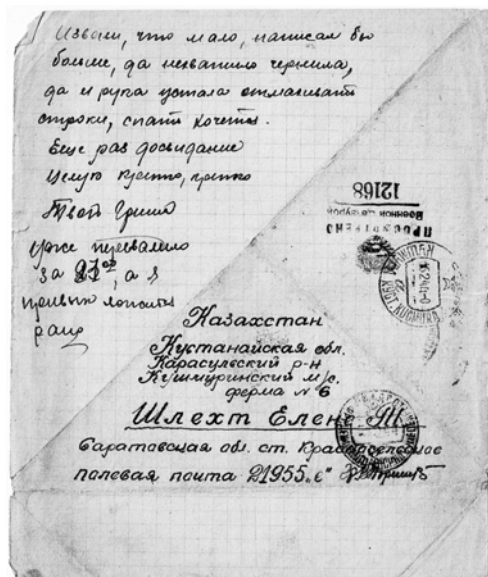 Извени, что мало, написал бы
больше, да нехватило чернила,
да и рука устала отмахивать
строки, спать хочется.
Еще раз досвидание
Целую крепко, крепко
Твой Гриша
уже перевалило
за, а я
привык ложится
рано
12168
Военной Цензурой
ПРОСМОТРЕНО
Казахстан
Кустанайская обл.
Карасульский р-н
Кушмуринский м/с.
ферма № 6
Шлехт Елен
Саратовская обл. ст. Красносельское
полевая почта 21955 „с"